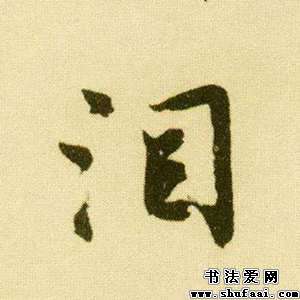 泪
书法爱网
www.shufaai.com